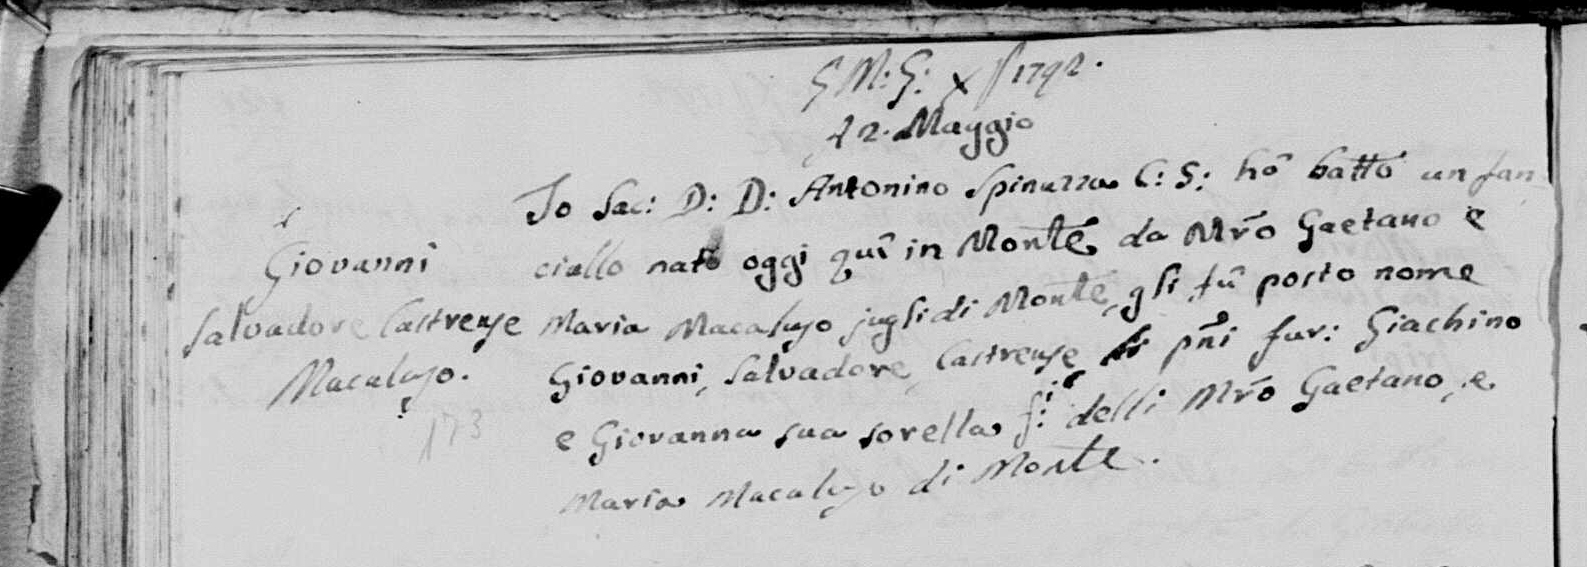 G: M: G: X 1792.
A 2. Maggio
Io Sac: D: D: Antonino Spinuzza C: S: hò batt̃o un fan-
Giovanni
ciullo nato oggi quì in Monte da Mr̃o Gaetano e
Salvadore Castrenze
Maria Macaluso jugli di Monte, gli fù posto nome
Macaluso.
Giovanni, Salvadore, Castrenze li pñi fur: Giachino
173
e Giovanna sua sorella f: delli Mr̃o Gaetano, e
Maria Macaluso di Monte.